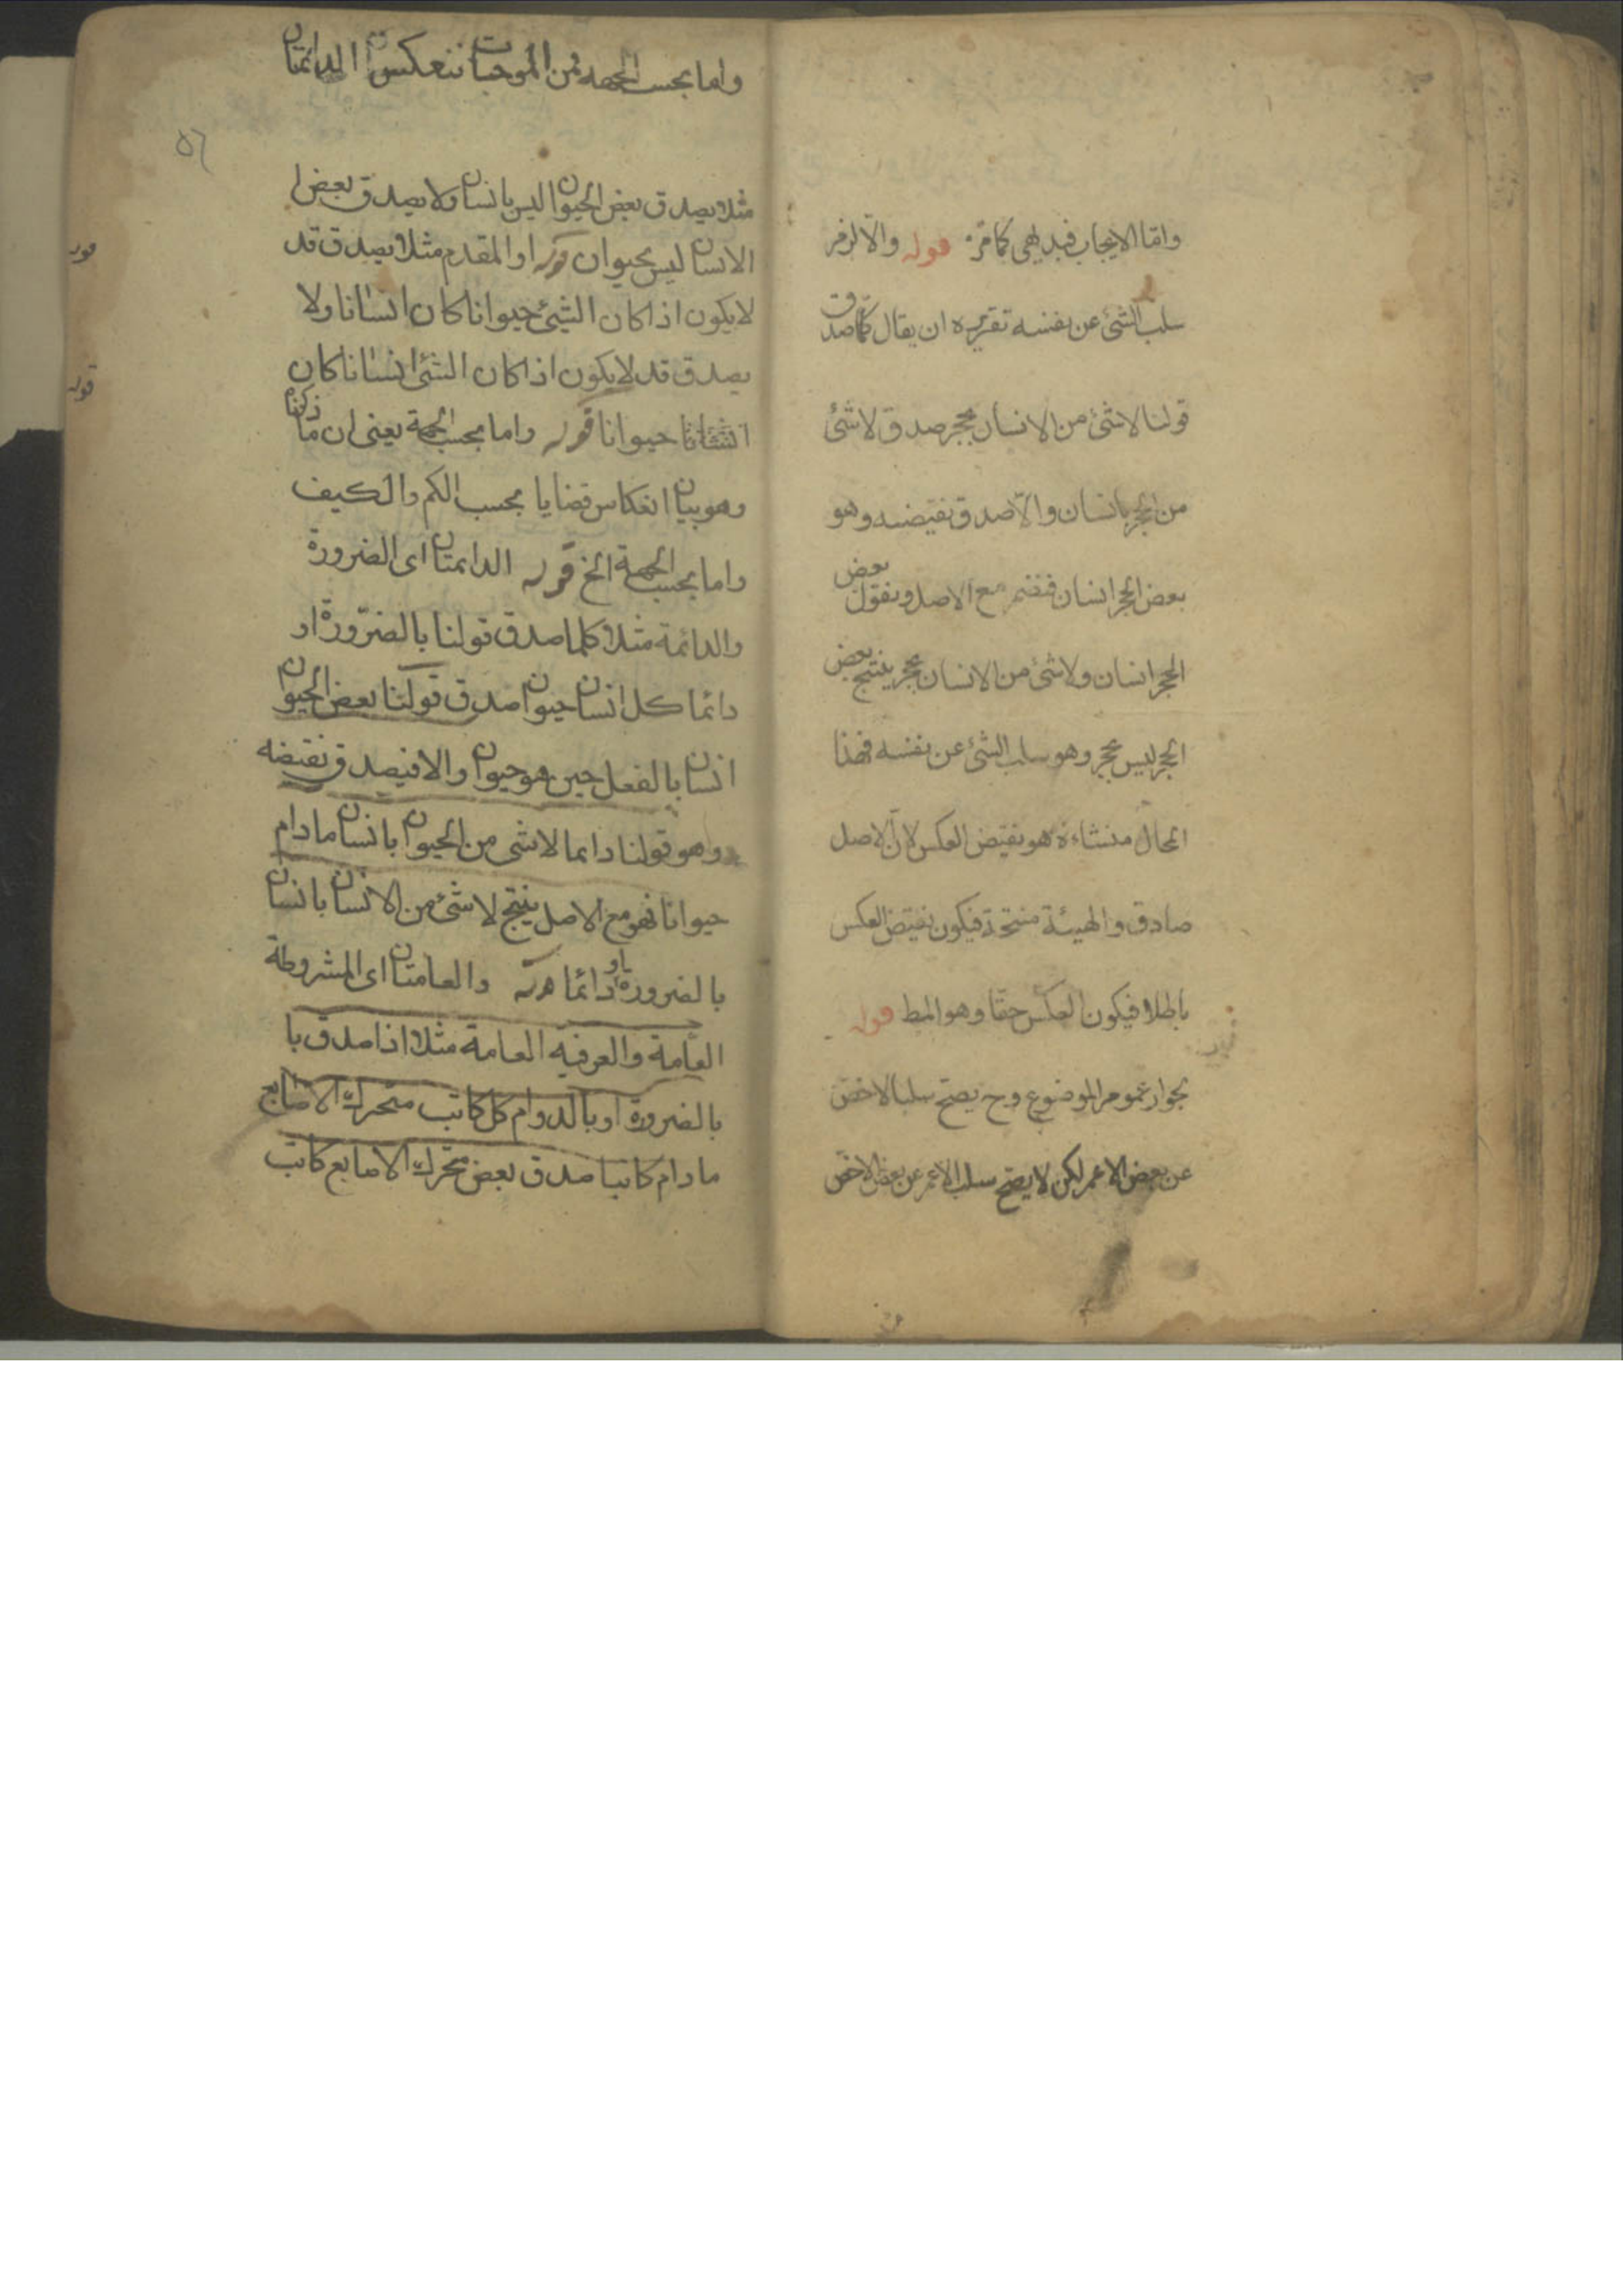 واما الايجاب فبديهى كما مر قوله والا لزم
سلب الشئ عن نفسه تقريره ان يقال كلما صدق
قولنا لا شئ من الانسان بحجر صدق لا شئ
من الحجر بانسان والا صدق نقيضه وهو
بعض الحجر انسان فنضم مع الاصل ونقول بعض
الحجر انسان ولا شئ من الانسان بحجر ينتج بعض
الحجر ليس بحجر وهو سلب الشئ عن نفسه فهذا
المحال منشاءه هو نقيض العكس لان الاصل
صادق والهيئة منتجة فيكون نقيض العكس
باطلا فيكون العكس حقا وهو المط قوله
لجواز عموم الموضوع وح يصح سلب الاخص
عن بعض الاعم لكن لا يصح سلب الاعم عن بعض الاخص
واما بحسب الجهه فمن الموجبات تنعكس الدائمتان
٥٦
مثلا يصدق بعض الحيوان ليس بانسان ولا يصدق بعض
الانسان ليس بحيوان قوله او المقدم مثلا يصدق قد
لا يكون اذا كان الشئ حيوانا كان انسانا ولا
يصدق قد لا يكون اذا كان الشئ انسانا كان
حيوانا قوله واما بحسب الجهة يعنى ان ما ذكرنا
وهو بيان انعكاس قضايا بحسب الكم والكيف
واما بحسب الجهة الخ قوله الدائمتان اى الضرورة
والدائمة مثلا كلما صدق قولنا بالضرورة او
دائما كل انسان حيوان صدق قولنا بعض الحيوان
انسان بالفعل حين هو حيوان والا فيصدق نقيضه
وهو قولنا دايما لا شى من الحيوان بانسان مادام
حيوانا فهو مع الاصل ينتج لا شئ من الانسان بانسان
بالضرورة او دائما قوله والعامتان اى المشروطة
العامة والعرفيه العامة مثلا اذا صدق با
بالضرورة او بالدوام كل كاتب متحرك الاصابع
مادام كاتبا صدق بعض متحرك الاصابع كاتب
قوله
قوله